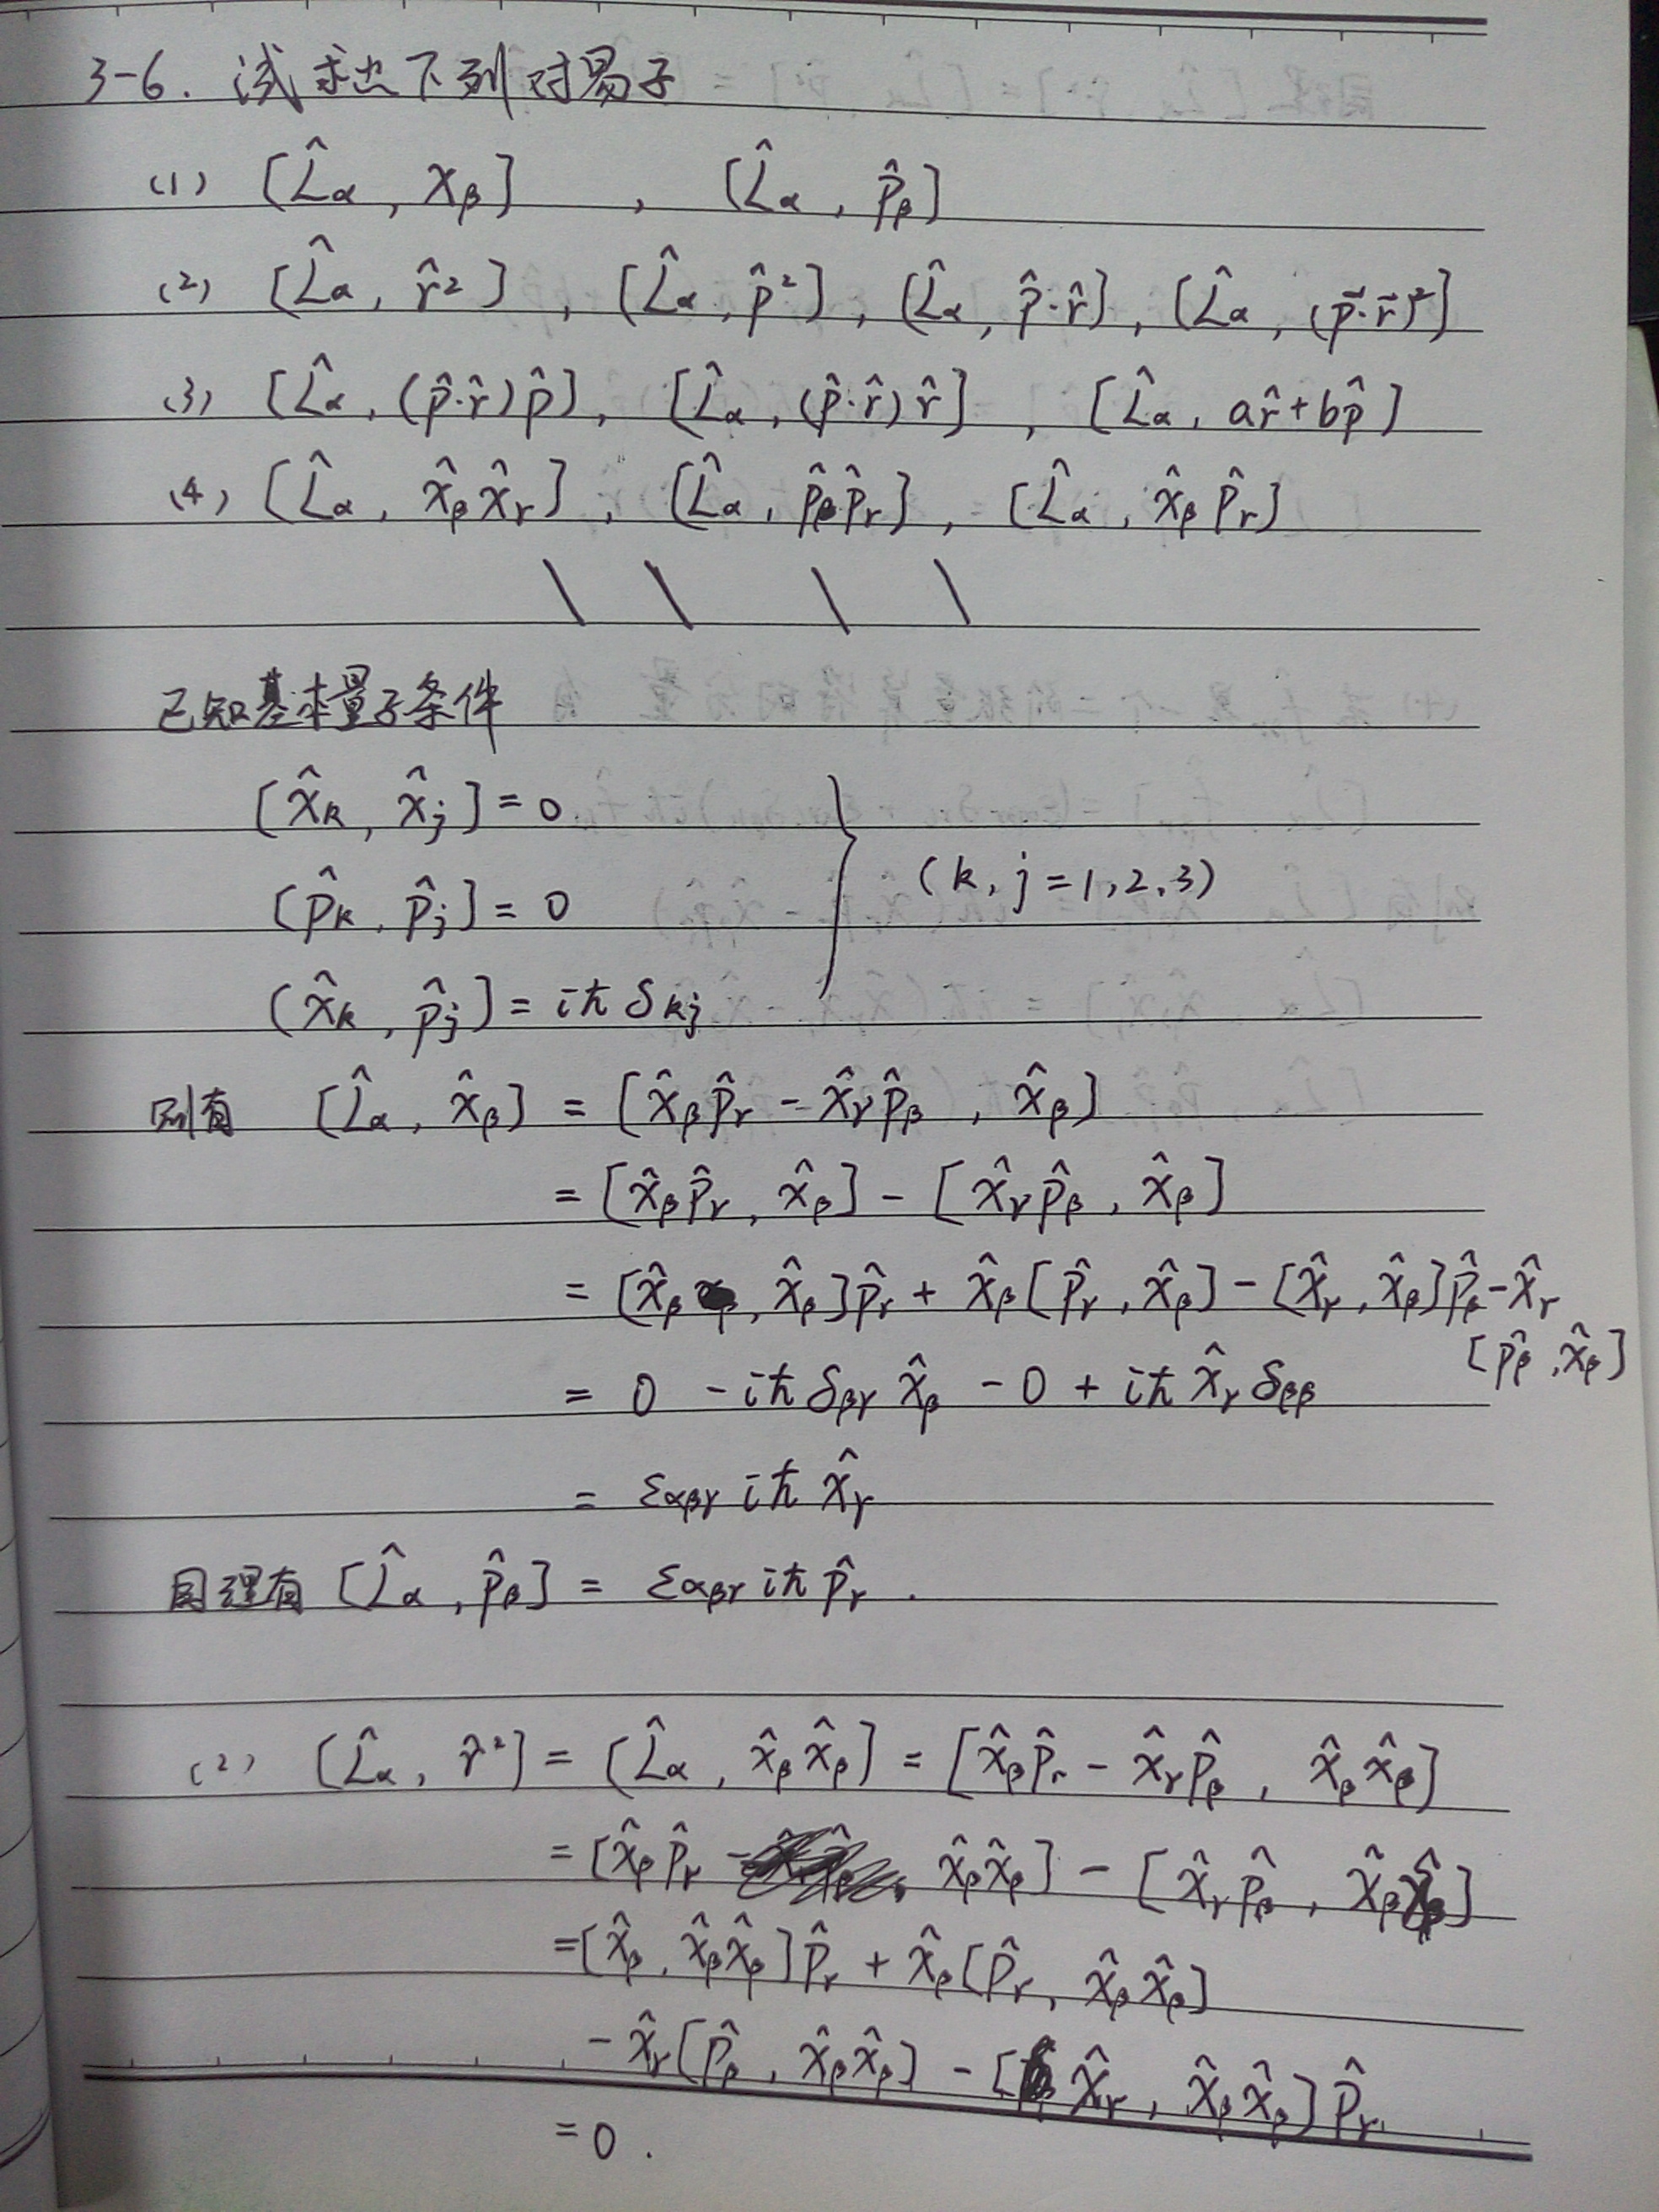 3-6. 试求出下列对易子
(1) [L̂α, xβ] , [L̂α, p̂β]
(2) [L̂α, r̂²] , [L̂α, p̂²], [L̂α, p̂·r̂], [L̂α, (p⃗·r⃗)²]
(3) [L̂α, (p̂·r̂)p̂], [L̂α, (p̂·r̂)r̂], [L̂α, ar̂+bp̂]
(4) [L̂α, x̂βx̂γ], [L̂α, p̂βp̂γ], [L̂α, x̂βp̂γ]
\ \ \ \
已知基本量子条件
[x̂k, x̂j] = 0
[p̂k, p̂j] = 0 } (k, j = 1, 2, 3)
[x̂k, p̂j] = iħδkj
则有 [L̂α, x̂β] = [x̂βp̂γ - x̂γp̂β, x̂β]
= [x̂βp̂γ, x̂β] - [x̂γp̂β, x̂β]
= [x̂β, x̂β]p̂γ + x̂β[p̂γ, x̂β] - [x̂γ, x̂β]p̂β - x̂γ
[p̂β, x̂β]
= 0 - iħδβγx̂β - 0 + iħx̂γδββ
= εαβγiħx̂γ
同理有 [L̂α, p̂β] = εαβγiħp̂γ.
(2) [L̂α, r̂²] = [L̂α, x̂βx̂β] = [x̂βp̂γ - x̂γp̂β, x̂βx̂β]
= [x̂βp̂γ, x̂βx̂β] - [x̂γp̂β, x̂βx̂β]
= [x̂β, x̂βx̂β]p̂γ + x̂β[p̂γ, x̂βx̂β]
- x̂γ[p̂β, x̂βx̂β] - [x̂γ, x̂βx̂β]p̂γ
= 0.